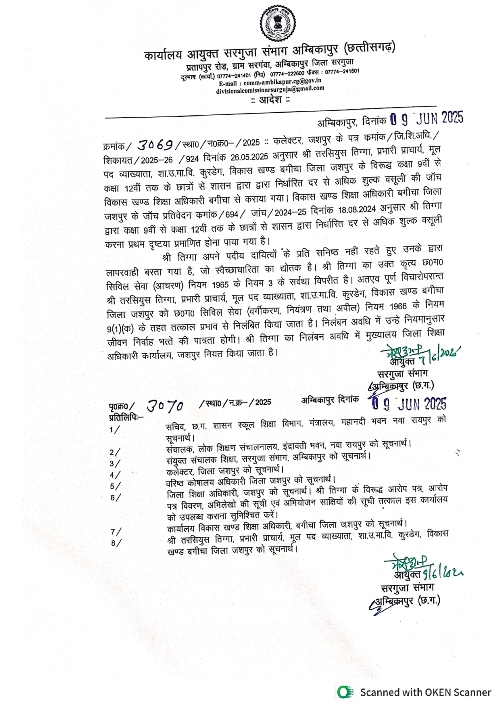 कार्यालय आयुक्त सरगुजा संभाग अम्बिकापुर (छत्तीसगढ़)
प्रतापपुर रोड, ग्राम सरगंवा, अम्बिकापुर जिला सरगुजा
दूरभाष (कार्या.) 07774-241401 (नि) 07774-222603 फैक्स : 07774-241501
E-mail : comm-ambikapur.cg@gov.in
divisionalcomissionersurguja@gmail.com
:: आदेश ::
अम्बिकापुर, दिनांक 09 JUN 2025
क्रमांक/ 3069 /स्था0/न0क्र0-/2025 :: कलेक्टर, जशपुर के पत्र क्रमांक/जि.शि.अधि./
शिकायत/2025-26 /924 दिनांक 26.05.2025 अनुसार श्री तरसियुस तिग्गा, प्रभारी प्राचार्य, मूल
पद व्याख्याता, शा.उ.मा.वि. कुरडेग, विकास खण्ड बगीचा जिला जशपुर के विरूद्ध कक्षा 9वीं से
कक्षा 12वीं तक के छात्रों से शासन द्वारा निर्धारित दर से अधिक शुल्क वसूली की जाँच
विकास खण्ड शिक्षा अधिकारी बगीचा से कराया गया। विकास खण्ड शिक्षा अधिकारी बगीचा जिला
जशपुर के जाँच प्रतिवेदन क्रमांक/694/ जांच/2024-25 दिनांक 18.08.2024 अनुसार श्री तिग्गा
द्वारा कक्षा 9वीं से कक्षा 12वीं तक के छात्रों से शासन द्वारा निर्धारित दर से अधिक शुल्क वसूली
करना प्रथम दृष्टया प्रमाणित होना पाया गया है।
श्री तिग्गा अपने पदीय दायित्वों के प्रति सनिष्ठ नहीं रहते हुए उनके द्वारा
लापरवाही बरता गया है, जो स्वैच्छाचारिता का द्योतक है। श्री तिग्गा का उक्त कृत्य छ0ग0
सिविल सेवा (आचरण) नियम 1965 के नियम 3 के सर्वथा विपरीत है। अतएव पूर्ण विचारोपरान्त
श्री तरसियुस तिग्गा, प्रभारी प्राचार्य, मूल पद व्याख्याता, शा.उ.मा.वि. कुरडेग, विकास खण्ड बगीचा
जिला जशपुर को छ0ग0 सिविल सेवा (वर्गीकरण, नियंत्रण तथा अपील) नियम 1966 के नियम
9(1)(क) के तहत तत्काल प्रभाव से निलंबित किया जाता है। निलंबन अवधि में उन्हे नियमानुसार
जीवन निर्वाह भत्ते की पात्रता होगी। श्री तिग्गा का निलंबन अवधि में मुख्यालय जिला शिक्षा
अधिकारी कार्यालय, जशपुर नियत किया जाता है।
आयुक्त
सरगुजा संभाग
अम्बिकापुर (छ.ग.)
पृ0क्र0/ 3070 /स्था0/न.क्र.-/2025 अम्बिकापुर दिनांक 09 JUN 2025
प्रतिलिपिः-
1/ सचिव, छ.ग. शासन स्कूल शिक्षा विभाग, मंत्रालय, महानदी भवन नवा रायपुर को
सूचनार्थ।
2/ संचालक, लोक शिक्षण संचालनालय, इंद्रावती भवन, नवा रायपुर को सूचनार्थ।
3/ संयुक्त संचालक शिक्षा, सरगुजा संभाग, अम्बिकापुर को सूचनार्थ।
4/ कलेक्टर, जिला जशपुर को सूचनार्थ।
5/ वरिष्ठ कोषालय अधिकारी जिला जशपुर को सूचनार्थ।
6/ जिला शिक्षा अधिकारी, जशपुर को सूचनार्थ। श्री तिग्गा के विरूद्ध आरोप पत्र, आरोप
पत्र विवरण, अभिलेखो की सूची एवं अभियोजन साक्षियों की सूची तत्काल इस कार्यालय
को उपलब्ध कराना सुनिश्चित करें।
7/ कार्यालय विकास खण्ड शिक्षा अधिकारी, बगीचा जिला जशपुर को सूचनार्थ।
8/ श्री तरसियुस तिग्गा, प्रभारी प्राचार्य, मूल पद व्याख्याता, शा.उ.मा.वि. कुरडेग, विकास
खण्ड बगीचा जिला जशपुर को सूचनार्थ।
आयुक्त
सरगुजा संभाग
अम्बिकापुर (छ.ग.)
Scanned with OKEN Scanner